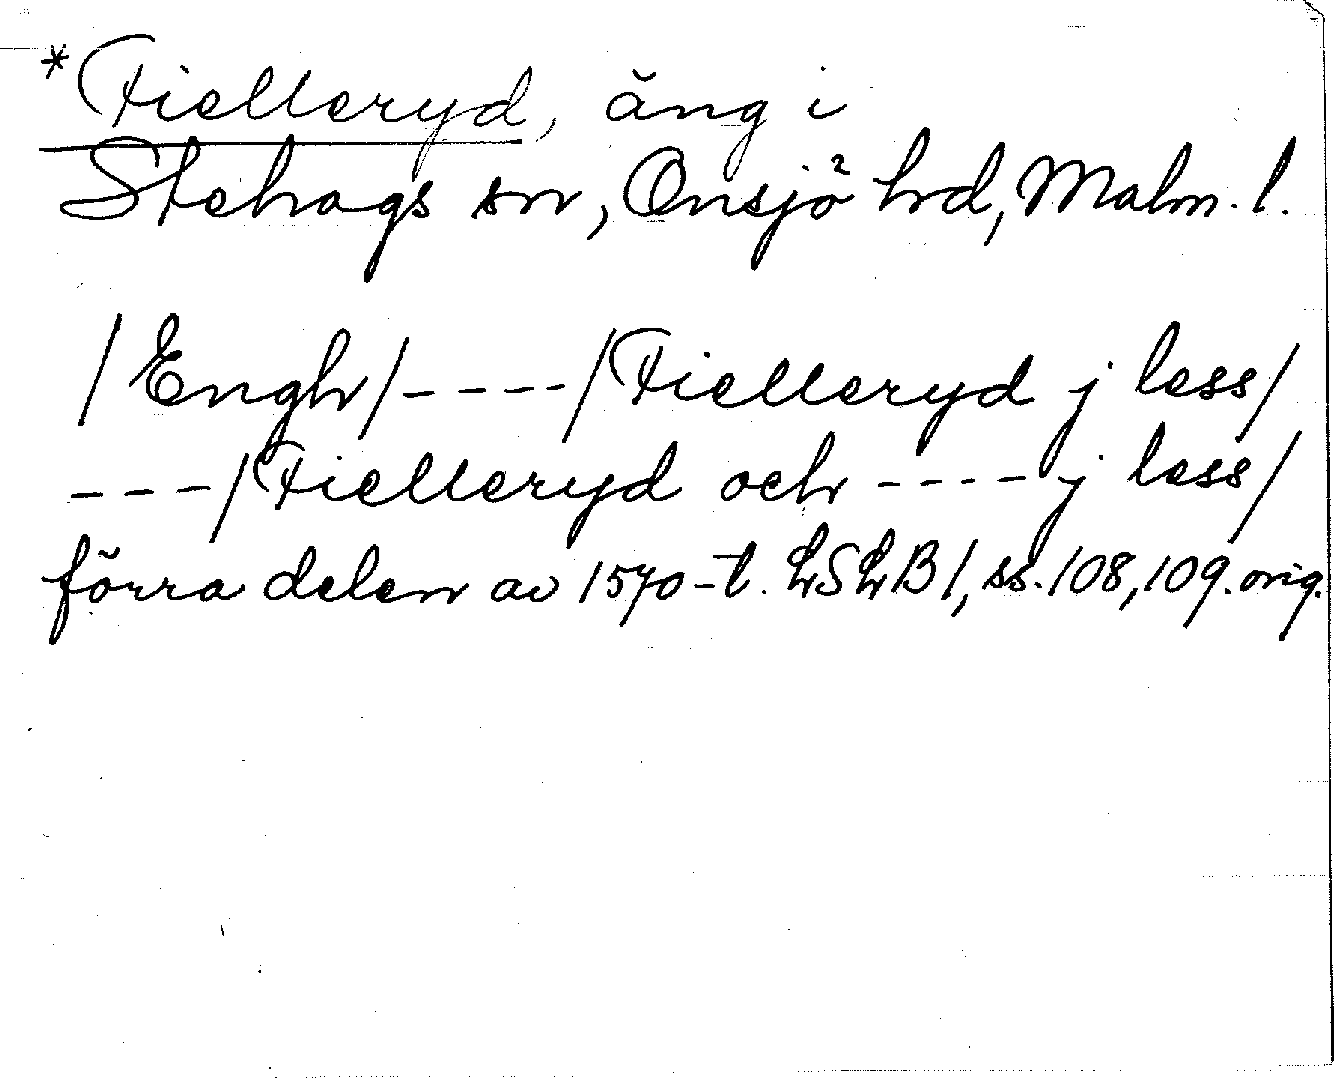 *Fielleryd, äng i
Stehags sn, Onsjö hd, Malm. l.
/Engh/----/Fielleryd j less/
---/Fielleryd och ----j less/
förra delen av 1570-t. LSLB 1, ss. 108, 109. orig.